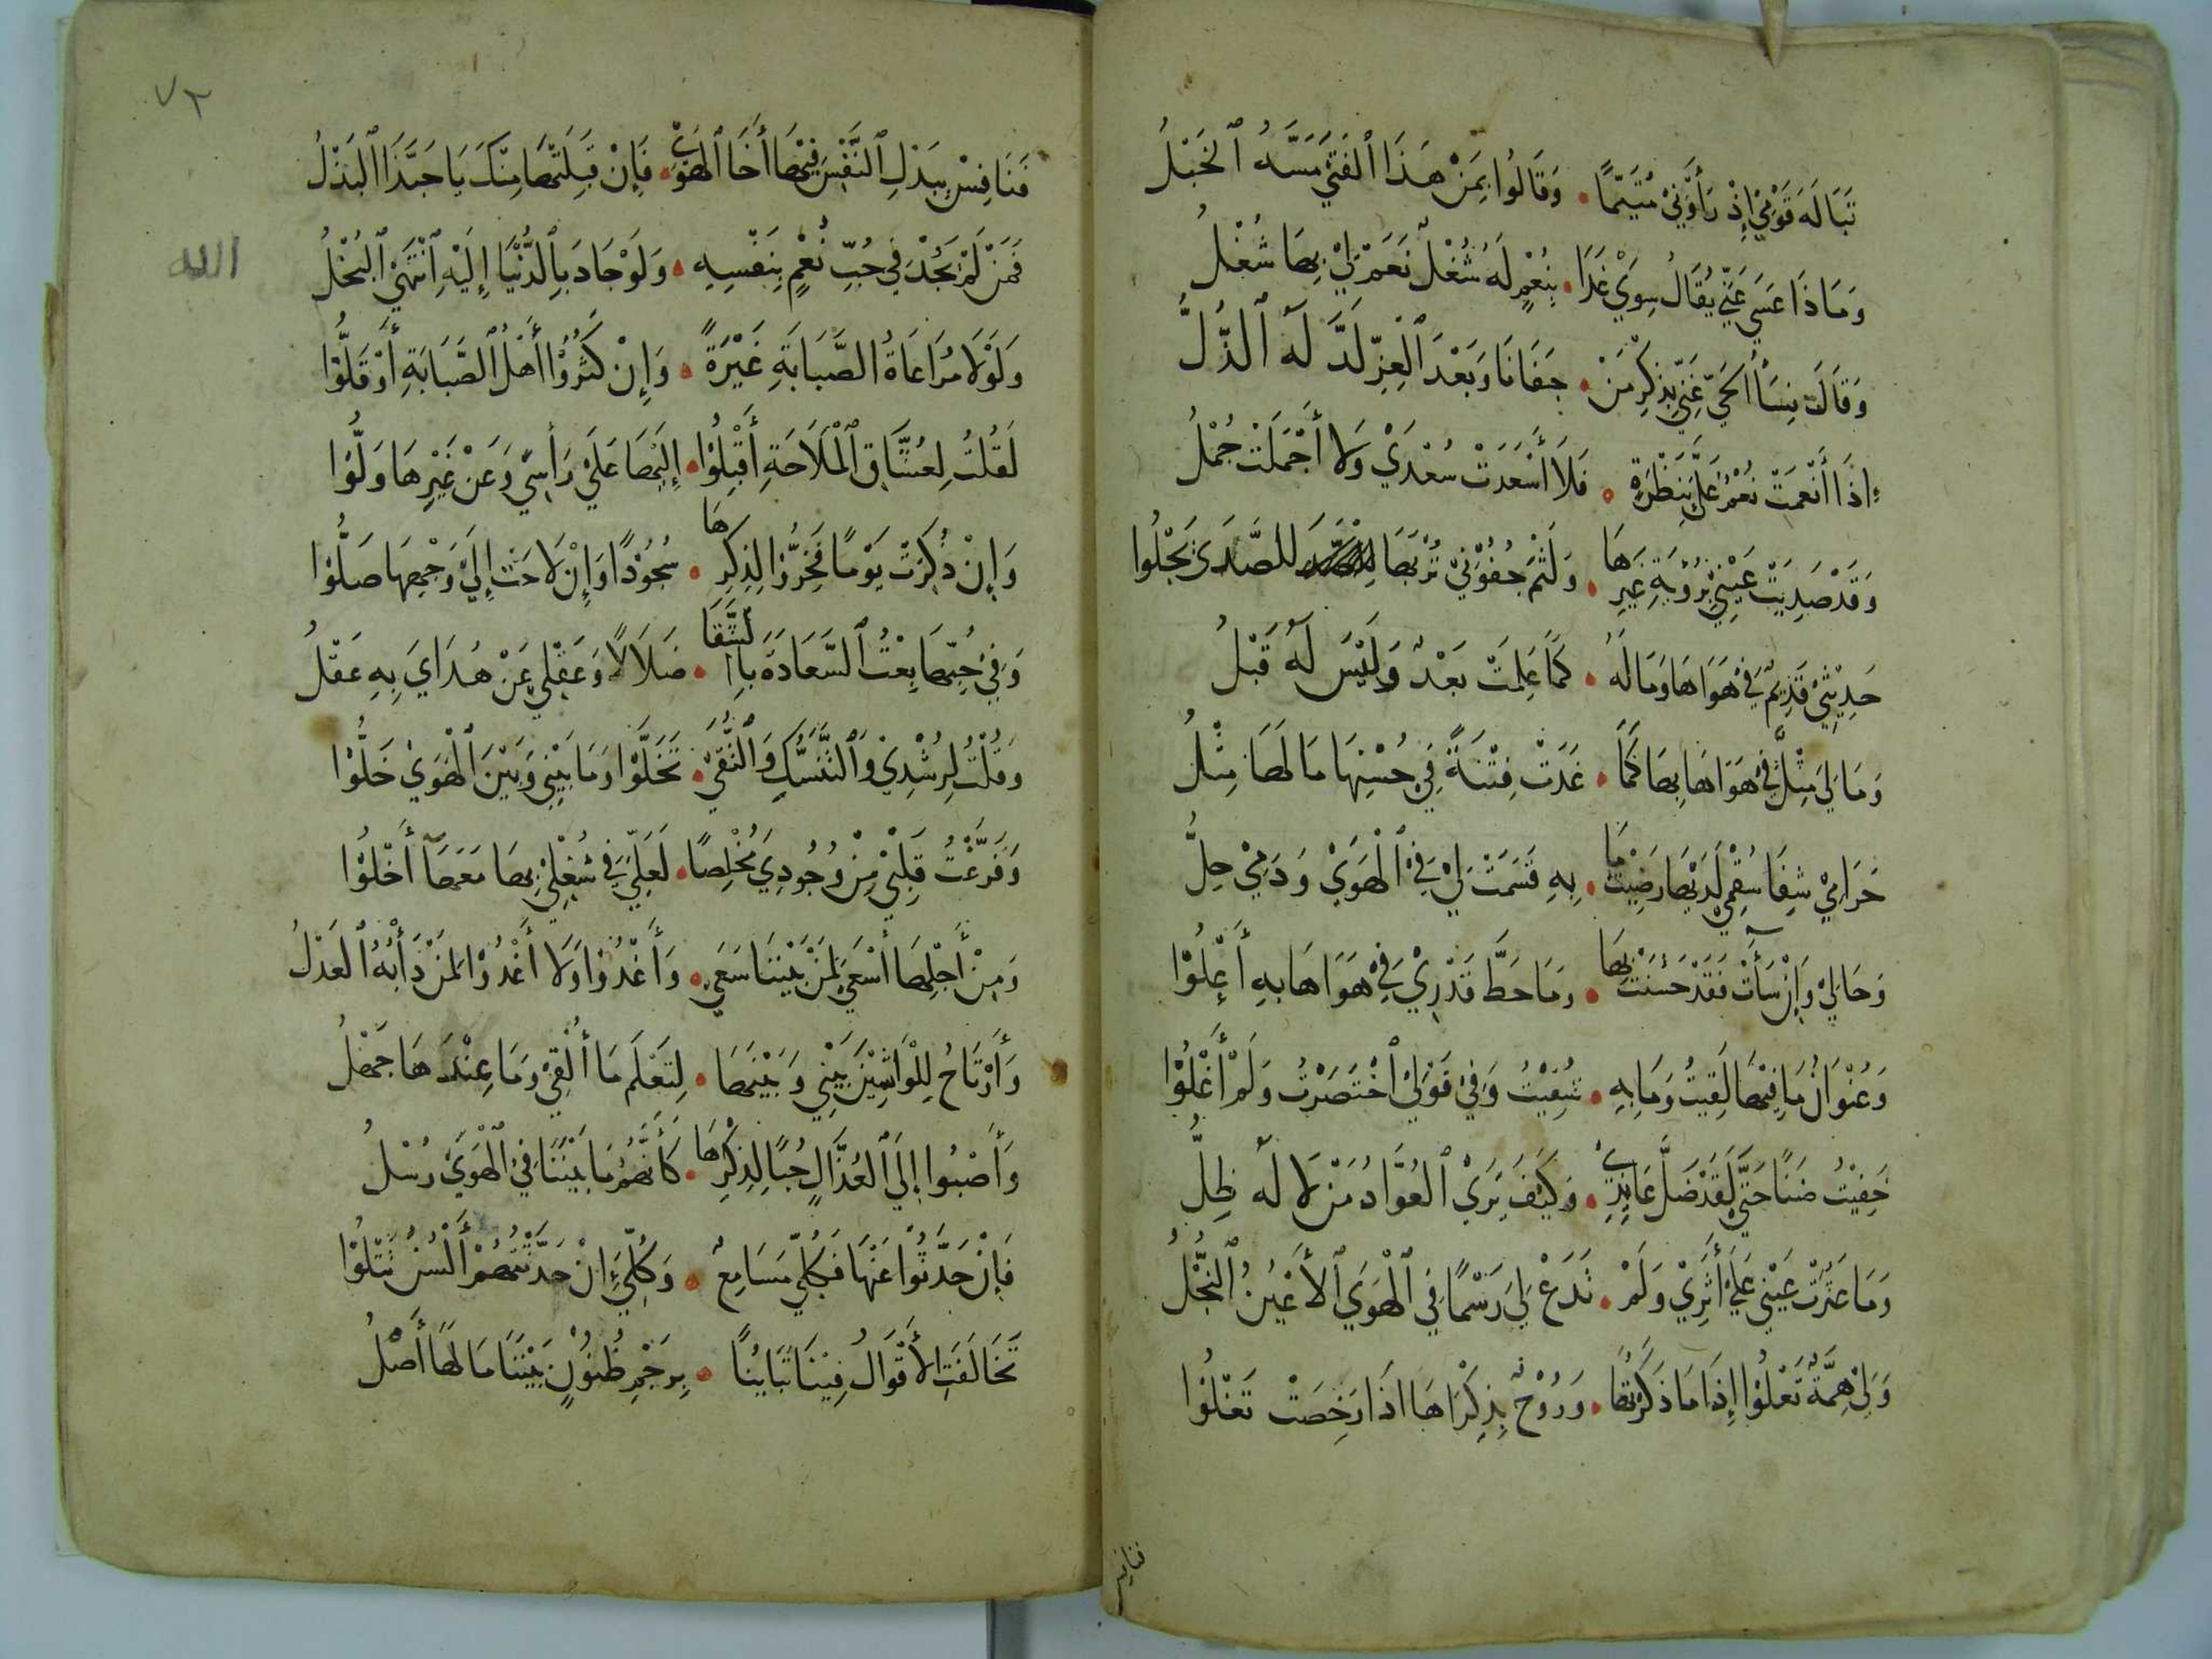 تَبَالَهَ قَوْمِيْ إِذْ رَأَوْنِيْ مُتَيَّمًا • وَقَالُوا بِمَنْ هَذَا ٱلْفَتَيْ مَسَّهُ ٱلْخَبْلُ
وَمَاذَا عَسَيَ عَنِّيْ يُقَالُ سِوَيْ غَدَا • بِنُعْمٍ لَهُ شُغْلٌ نَعَمْ لِيْ بِهَا شُغْلُ
وَقَالَ نِسَاُ الحَيِّ عَنِّيْ بِذِكْرِ مَنْ • جَفَانَا وَبَعْدَ ٱلْعِزِّ لَذَّ لَهُ ٱلذُّلُّ
إِذَا أَنْعَمَتْ نُعْمٌ عَلَيَّ بِنَظْرَةٍ • فَلَا أَسْعَدَتْ سُعْدَيْ وَلَا أَجْمَلَتْ جُمْلُ
وَقَدْ صَدِيَتْ عَيْنِيْ بِرُؤْيَةِ غَيْرِهَا • وَلَثْمُ جُفُوْنِيْ تُرْبَهَا لِلصَّدَيَ يَجْلُوا
حَدِيْثِيْ قَدِيْمٌ فِيْ هَوَاهَا وَمَا لَهُ • كَمَا عَلِمَتْ بَعْدٌ وَلَيْسَ لَهُ قَبْلُ
وَمَا لِيَ مِثْلٌ فِيْ هَوَاهَا بِهَا كَمَا • غَدَتْ فِتْنَةً فِيْ حُسْنِهَا مَا لَهَا مِثْلُ
حَرَامِيْ شِفَا سُقْمِيْ لَدَيْهَا رَضِيْتُ مَا • بِهِ قَسَمَتْ لِيْ فِيْ ٱلْهَوَيْ وَدَمِيْ حِلُّ
وَحَالِيْ وَإِنْ سَآءَتْ فَقَدْ حَسُنَتْ بِهَا • وَمَا حَطَّ قَدْرِيْ فِيْ هَوَاهَا بِهِ أَعْلُوْا
وَعُنْوَانُ مَا فِيْهَا لَقِيتُ وَمَا بِهِ • شَقِيْتُ وَفِيْ قَوْلِيْ ٱخْتَصَرْتُ وَلَمْ أَغْلُوْا
خَفِيْتُ ضَنًا حَتَّيْ لَقَدْ ضَلَّ عَايِدِيْ • وَكَيْفَ يَرَيْ ٱلعُوَّادُ مَنْ لَا لَهُ ظِلُّ
وَمَا عَثَرَتْ عَيْنٌ عَلَيْ أَثَرِيْ وَلَمْ • تَدَعْ لِيَ رَسْمًا فِي ٱلْهَوَيِ ٱلأَعْيُنُ ٱلنُّجْلُ
وَلِيْ هِمَّةٌ تَعْلُوْا إِذَا مَا ذَكَرْتُهَا • وَرُوْحٌ بِذِكْرَاهَا اذَا رَخِصَتْ تَغْلُوْا
فنافس
٧٢
فَنَافِسْ بِبَذْلِ ٱلنَّفْسِ فِيْهَا أَخَا ٱلهَوَيْ • فَإِنْ قَبِلَتْهَا مِنْكَ يَا حَبَّذَا ٱلبَذْلُ
فَمَنْ لَمْ يَجُدْ فِيْ حُبِّ نُعْمٍ بِنَفْسِهِ • وَلَوْ جَادَ بِٱلدُّنْيَا إِلَيْهِ ٱنْتَهَيْ ٱلبُخْلُ
الله
وَلَوْلَا مُرَاعَاةُ الصَّبَابَةِ غَيْرَةً • وَإِنْ كَثُرُوْا أَهْلُ ٱلصَّبَابَةِ أَوْ قَلُّوْا
لَقُلْتُ لِعُشَّاقِ ٱلْمَلَاحَةِ أَقْبِلُوْا • إِلَيْهَا عَلَيْ رَأسِيْ وَعَنْ غَيْرِهَا وَلُّوْا
وَإِنْ ذُكِرَتْ يَوْمًا فَخِرُّوْا لِذِكْرِهَا • سُجُوْدًا وَإِنْ لَاحَتْ إِلَيْ وَجْهِهَا صَلُّوْا
وَفِيْ حُبِّهَا بِعْتُ ٱلسَّعَادَةَ بِالشَّقَا • ضَلَالًا وَعَقْلِيْ عَنْ هُدَايَ بِهِ عَقْلُ
وَقُلْتُ لِرُشْدِيْ وَٱلتَّنَسُّكِ وَٱلتُّقَيْ • تَخَلَّوْا وَمَا بَيْنِيْ وَبَيْنَ ٱلْهَوَيْ خَلُّوْا
وَفَرَّغْتُ قَلْبِيْ مِنْ وُجُودِيَ مُخْلِصًا • لَعَلِّيَ فِيْ شُغْلِيْ بِهَا مَعَهَا أَخْلُوْا
وَمِنْ أَجْلِهَا أَسْعَيْ لِمَنْ بَيْنَنَا سَعَيْ • وَأَغْدُوْا وَلَا أَغْدُوْا لِمَنْ دَأْبُهُ ٱلعَذْلُ
وَأَرْتَاحُ لِلْوَاشِيْنَ بَيْنِي وَبَيْنَهَا • لِتَعْلَمَ مَا أَلْقِيْ وَمَا عِنْدَهَا جَهْلُ
وَأَصْبُوا إِلَيْ ٱلعُذَّالِ حُبًّا لِذِكْرِهَا • كَأَنَّهُمُ مَا بَيْنَنَا فِيْ ٱلْهَوَيْ رُسْلُ
فَإِنْ حَدَّثُوْا عَنْهَا فَكُلِّيْ مَسَامِعٌ • وَكُلِّيْ إِنْ حَدَّثْتُهُمْ أَلْسُنٌ تَتْلُوْا
تَخَالَفَتِ الأَقْوَالُ فِيْنَا تَبَايُنًا • بِرَجْمِ ظُنُوْنٍ بَيْنَنَا مَا لَهَا أَصْلُ